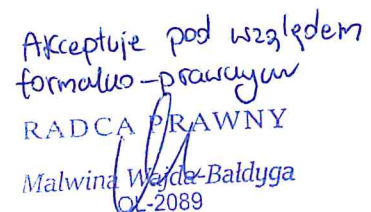 Akceptuje pod względem
formalno-prawnym
RADCA PRAWNY
Malwina Wajda-Bałdyga
OL-2089